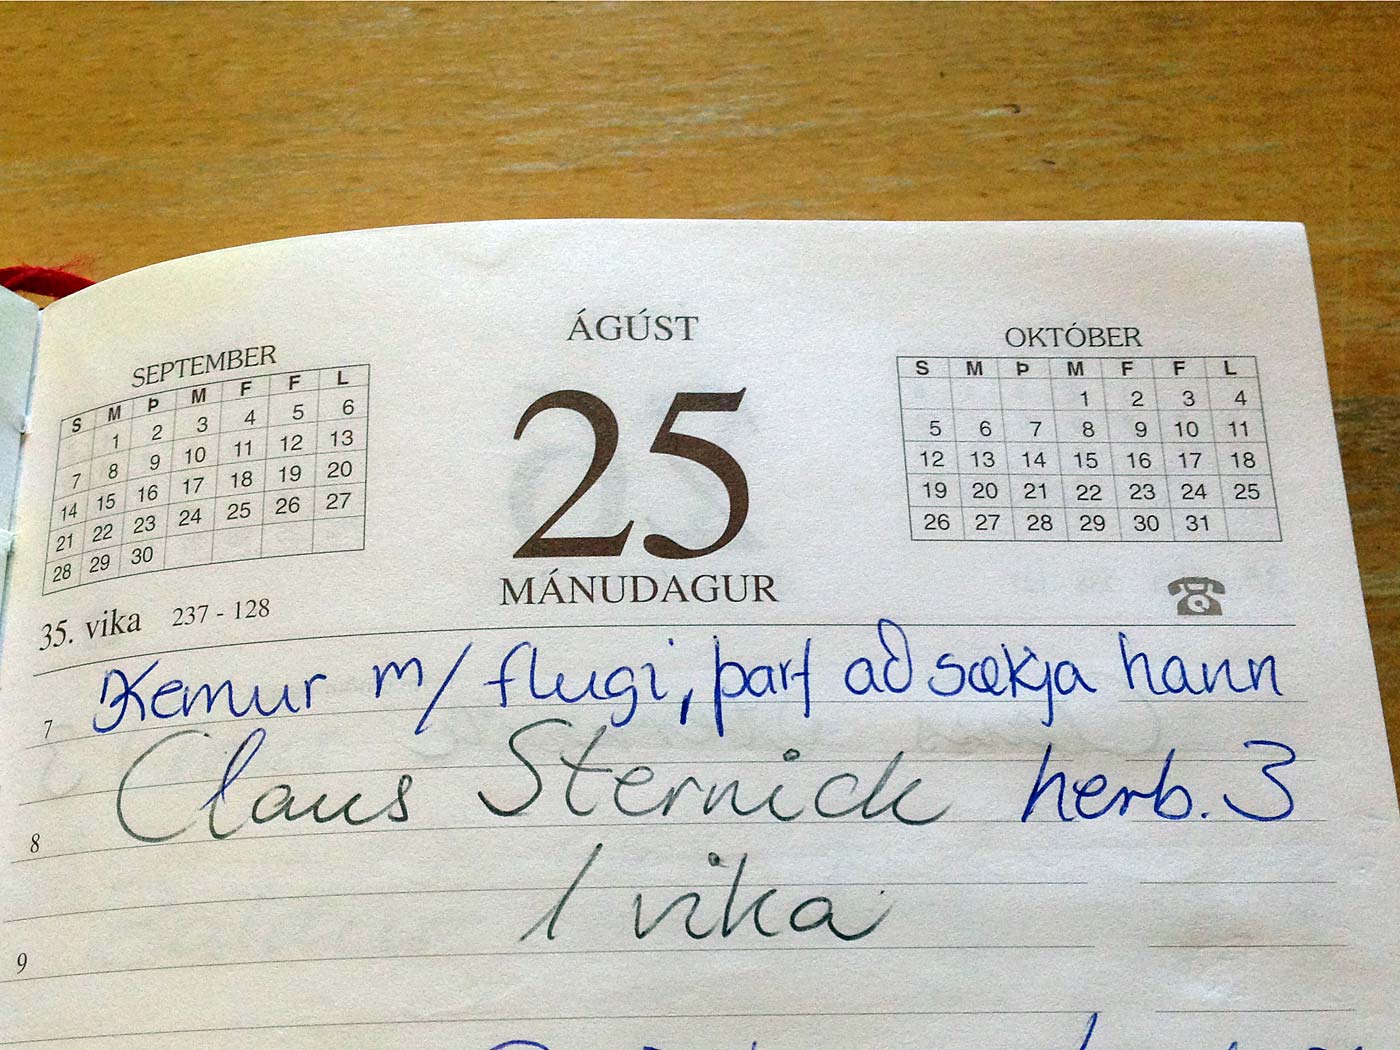 ÁGÚST
25
MÁNUDAGUR
SEPTEMBER
S M Þ M F F L
1 2 3 4 5 6
7 8 9 10 11 12 13
14 15 16 17 18 19 20
21 22 23 24 25 26 27
28 29 30
OKTÓBER
S M Þ M F F L
1 2 3 4
5 6 7 8 9 10 11
12 13 14 15 16 17 18
19 20 21 22 23 24 25
26 27 28 29 30 31
35. vika 237 - 128
Kemur m/ flugi, þarf að sækja hann
7
Claus Sternick herb. 3
8
1 vika
9